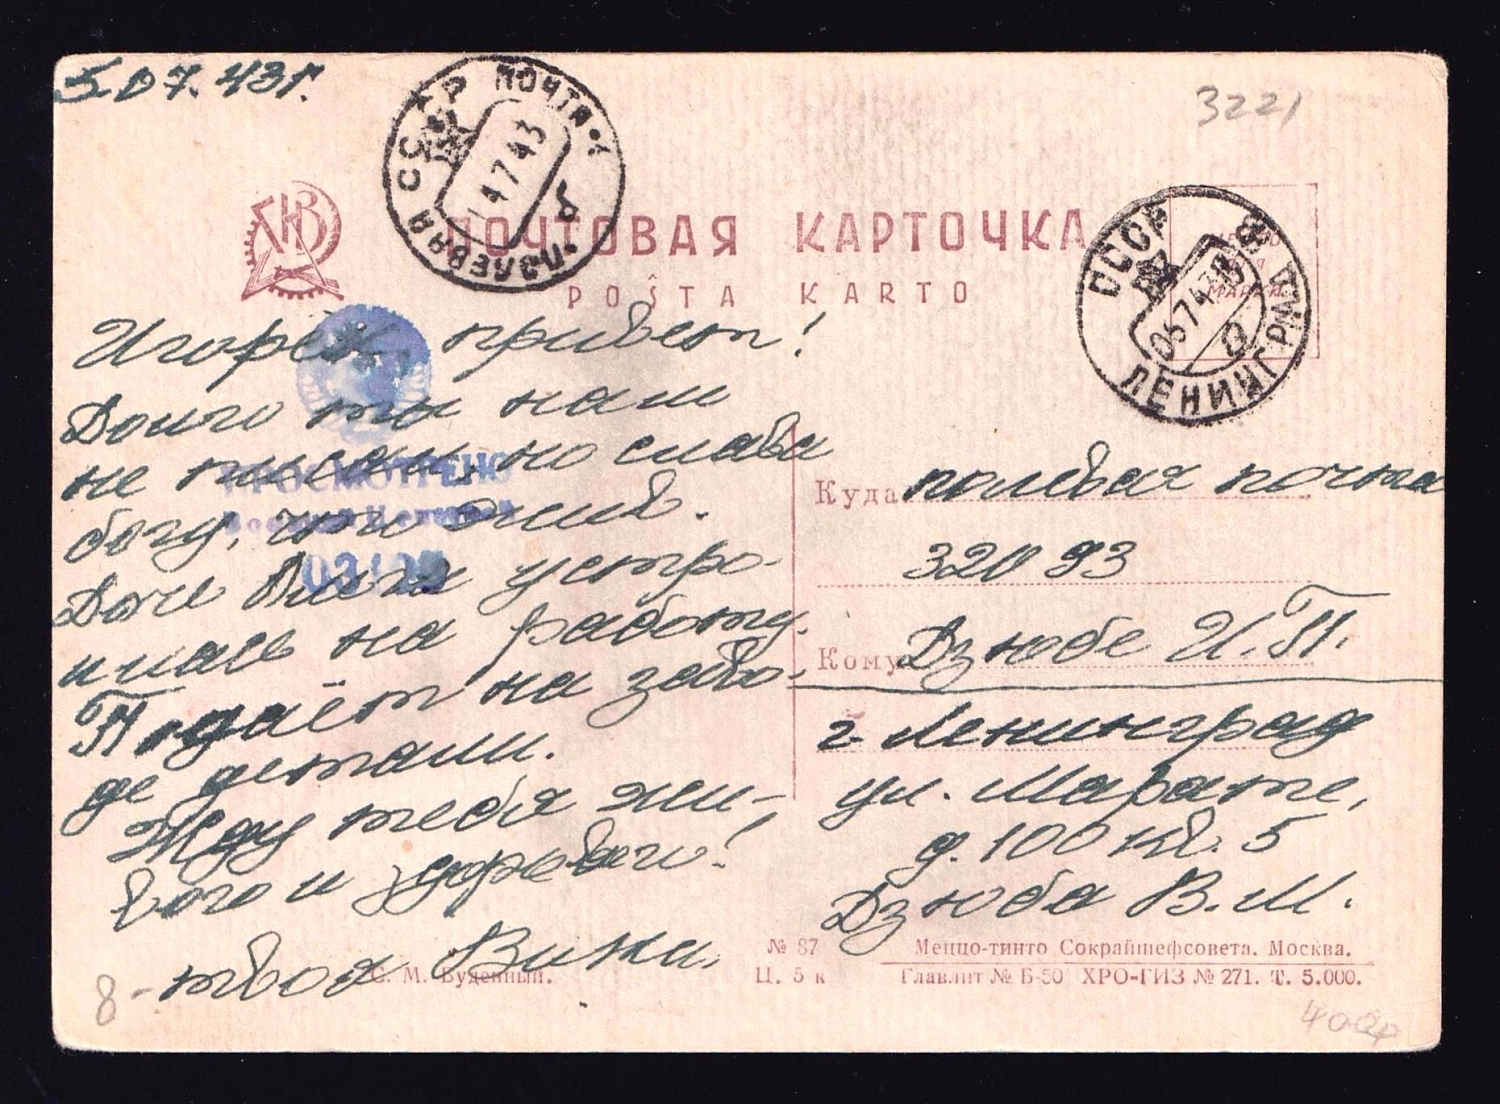 5.07.43г.
3221
СССР
ПОЛЕВАЯ ПОЧТА
14 7 43
ПОЧТОВАЯ КАРТОЧКА
POŜTA KARTO
СССР
ЛЕНИНГРАД
06 7 43
Игорёк, привет!
Долго ты нам
не писал, но слава
богу, что жив.
ПРОСМОТРЕНО
Военной Цензурой
устро-
илась на работу.
Подаёт на заво-
де детали.
Жду тебя жи-
вого и здорового!
твоя
Куда полевая почта
32093
Кому Дзюбе И.П.
г. Ленинград
ул. Марата,
д. 100 кв. 5
Дзюба В.М.
С. М. Буденный.
№ 87
Ц. 5 к
Меццо-тинто Сокрайшефсовета. Москва.
Главлит № Б-50 ХРО-ГИЗ № 271. Т. 5.000.
8-